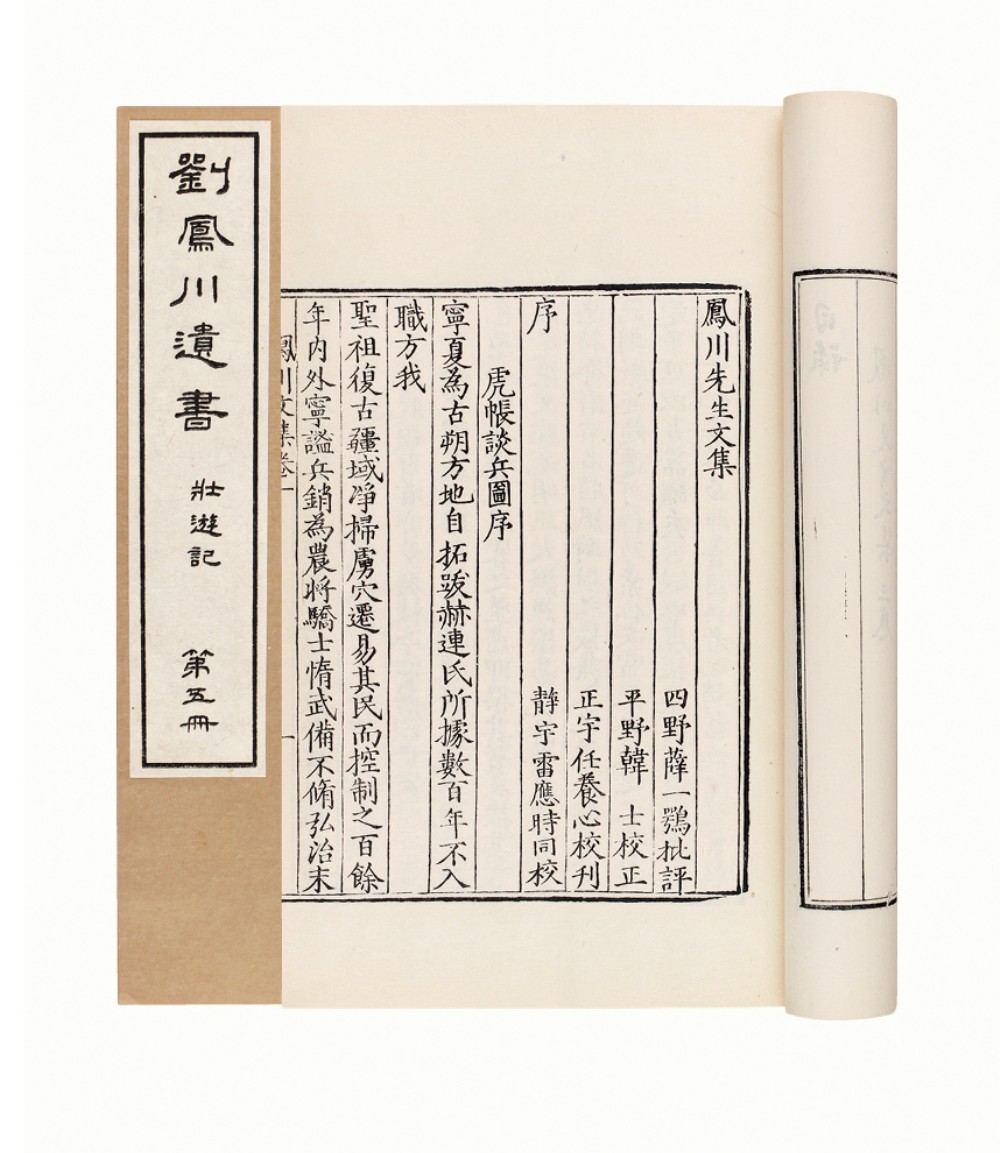 劉鳳川遺書 壯遊記 第五冊
鳳川先生文集
四野薛一鶚批評
平野韓 士校正
正宇任養心校刊
序 靜宇雷應時同校
虎帳談兵圖序
寧夏為古朔方地自拓跋赫連氏所據數百年不入
職方我
聖祖復古疆域淨掃虜穴遷易其民而控制之百餘
年內外寧謐兵銷為農將驕士惰武備不脩弘治末
鳳川文集卷一 一